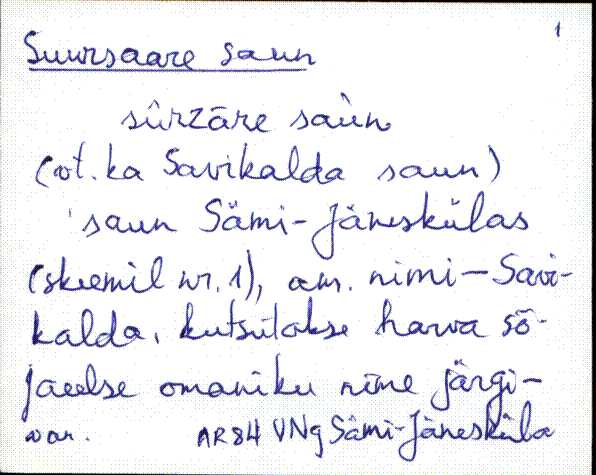 1
Suursaare saun
sûrzāre saùn
(vt. ka Savikalda saun)
saun Sämi-Jäneskülas
(skeemil nr. 1), am. nimi - Savi-
kalda. kutsutakse harva sõ-
jaeelse omaniku nime järgi -
van. AR84 VNg Sämi-Jänesküla